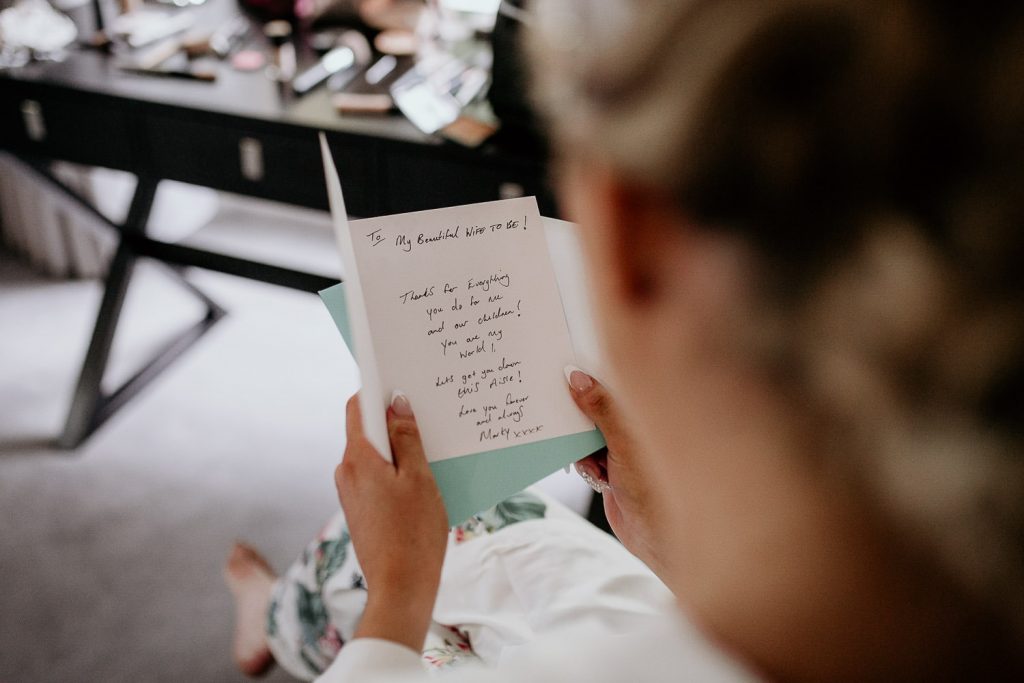 To My Beautiful Wife to be!
Thanks for Everything
you do for me
and our children!
You are my
World!.
Lets get you down
this Aisle!
Love you forever
and always
Marky xxxx